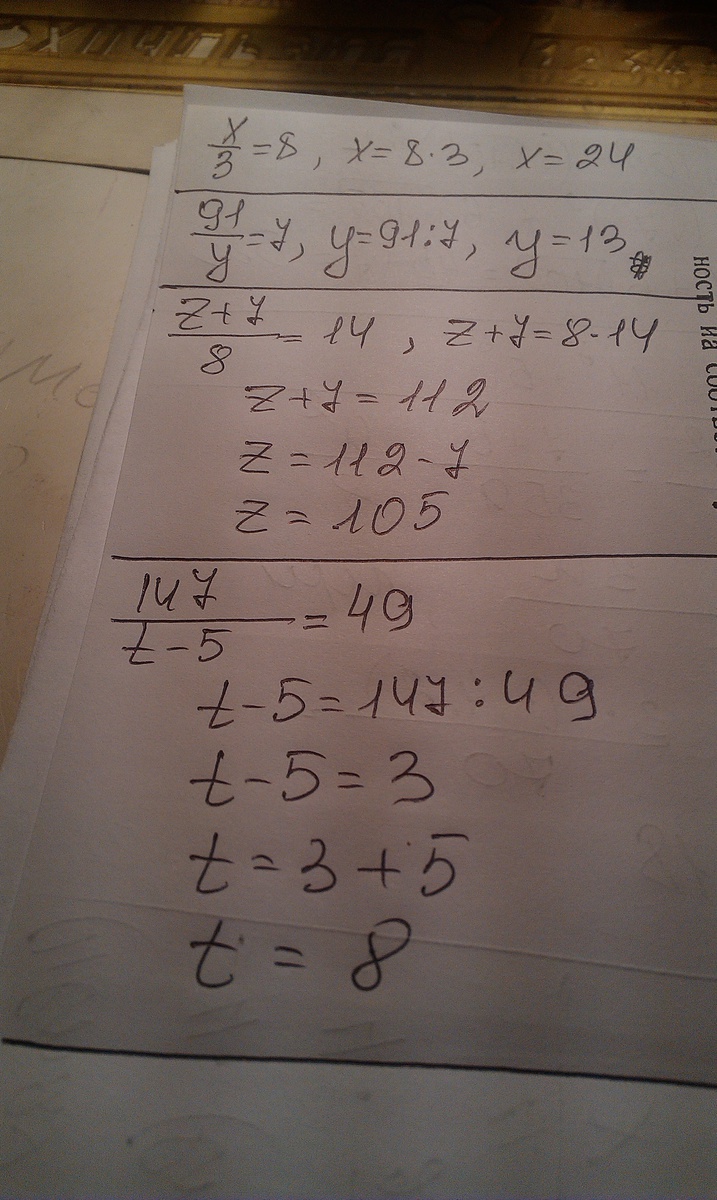 x/3 = 8, x = 8·3, x = 24
91/y = 7, y = 91:7, y = 13
z+7/8 = 14, z+7 = 8·14
z+7 = 112
z = 112-7
z = 105
147/t-5 = 49
t-5 = 147:49
t-5 = 3
t = 3+5
t = 8
ность на